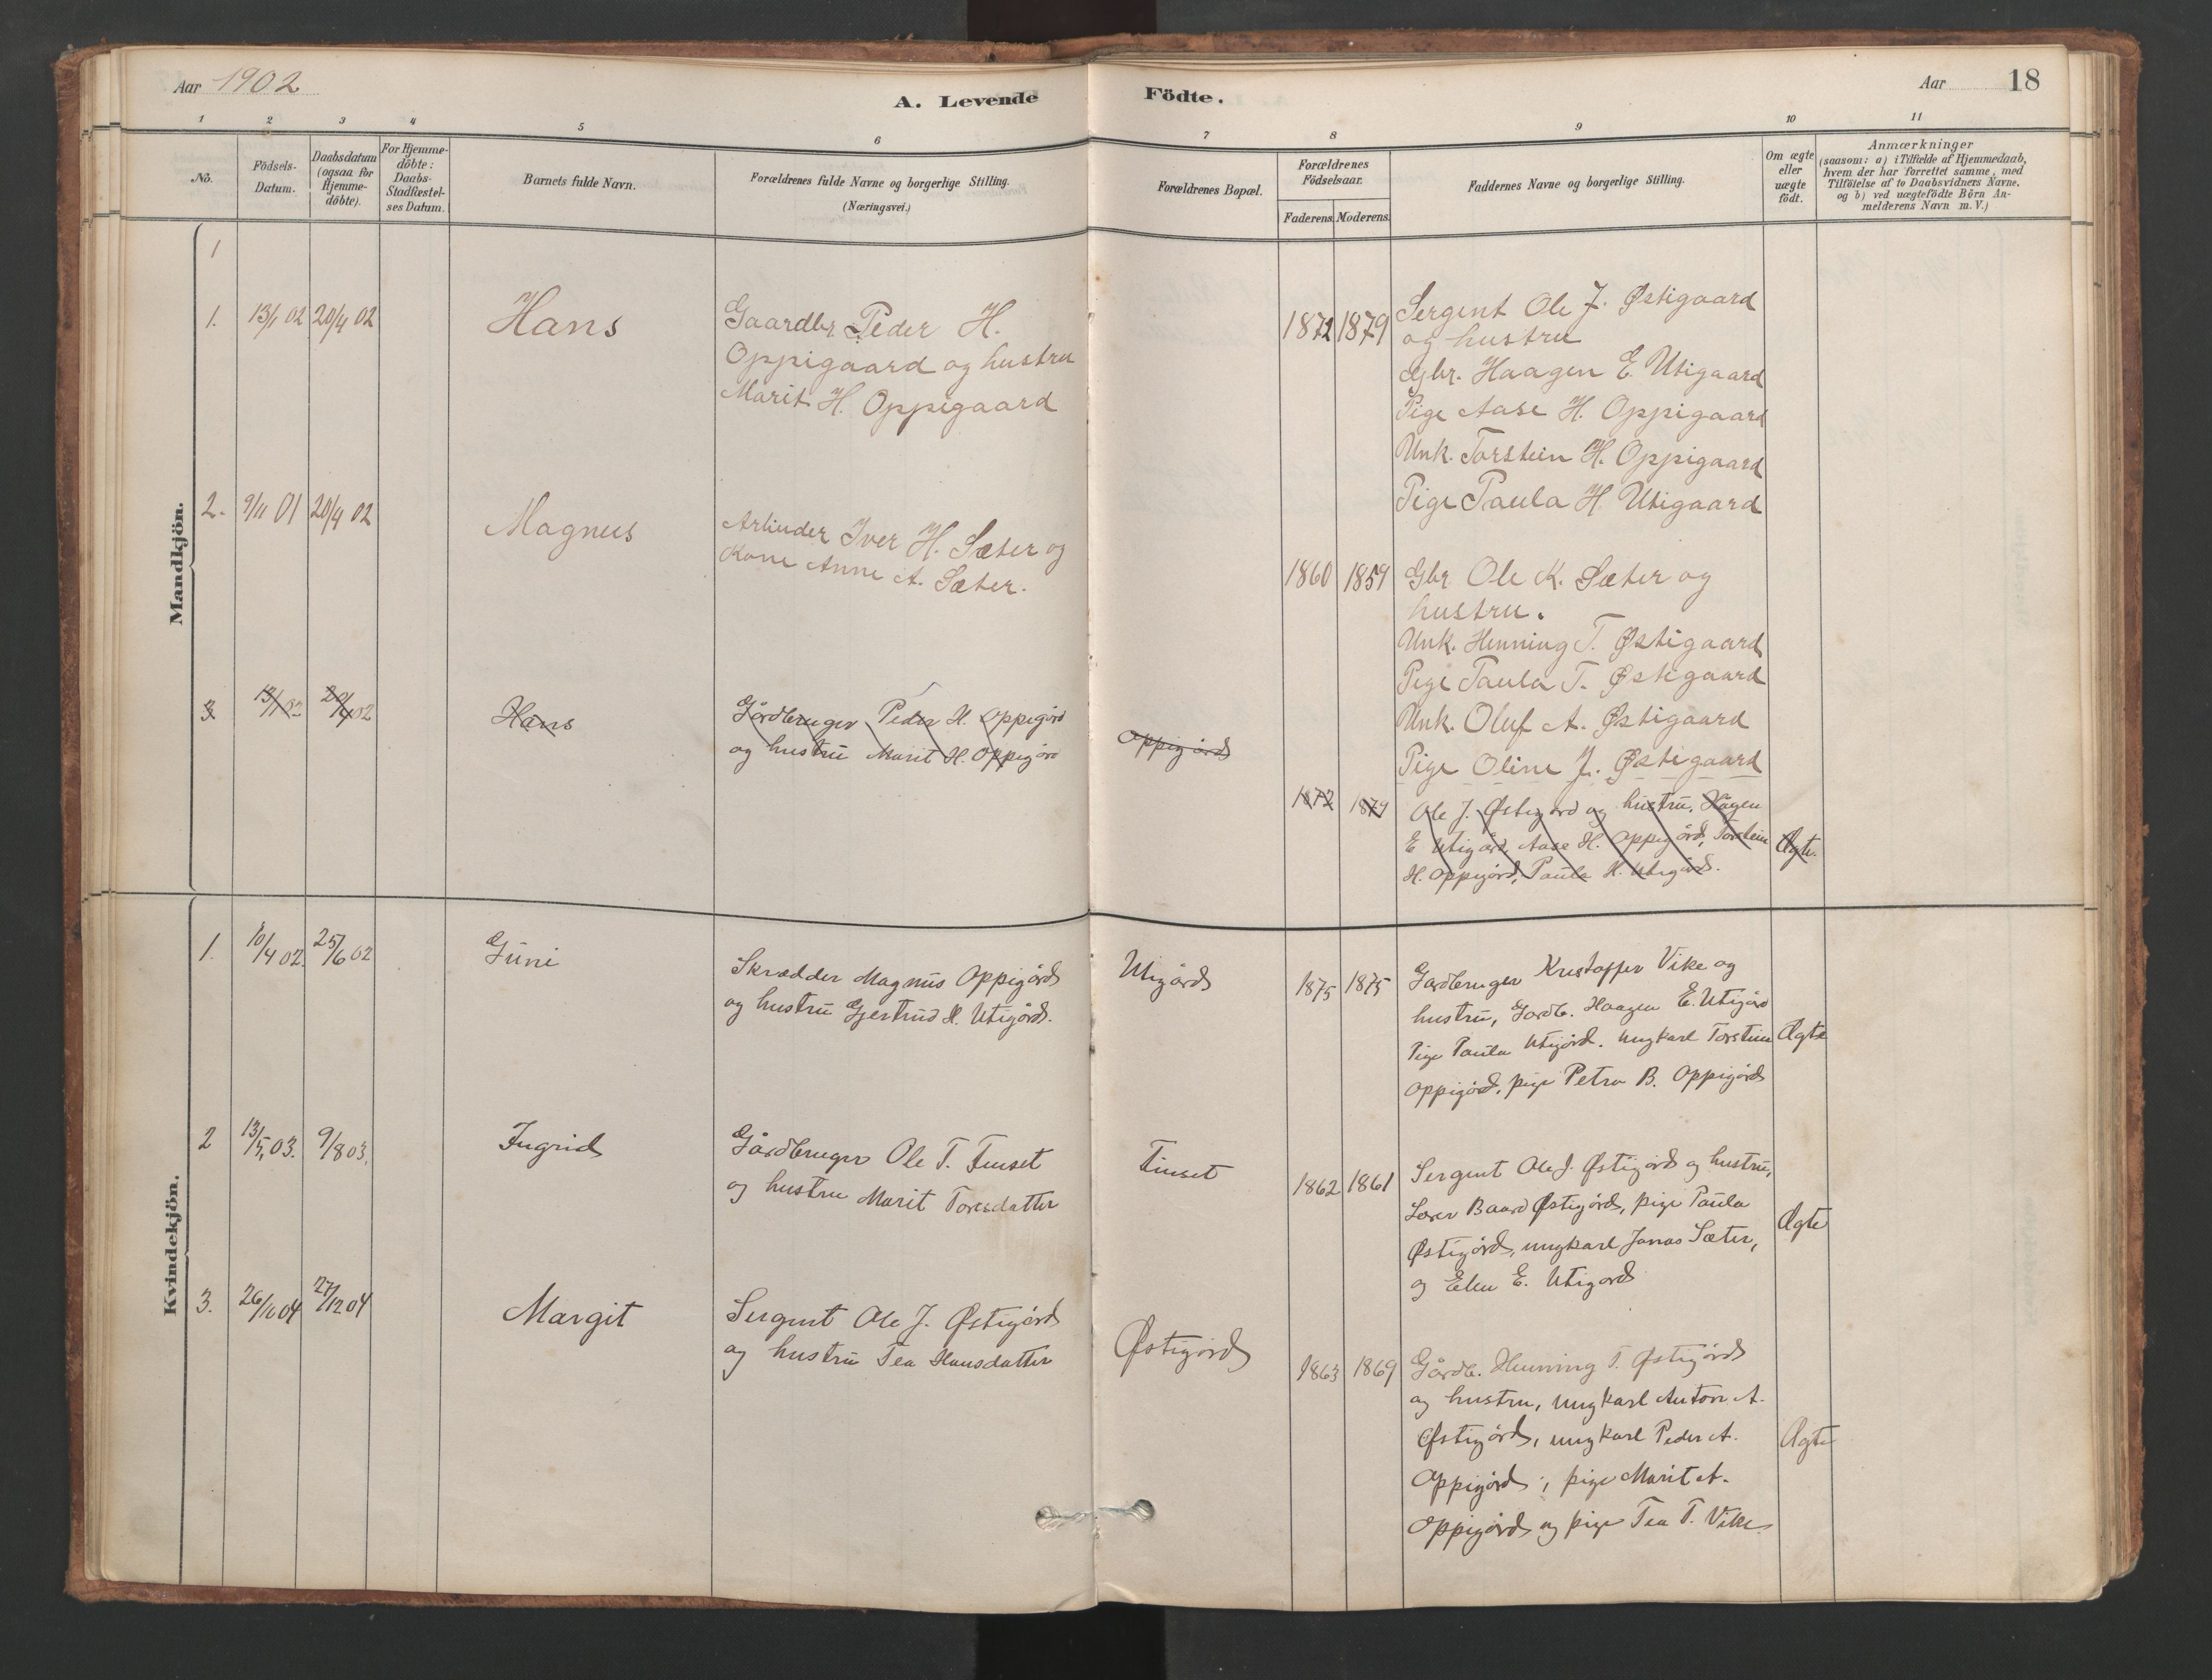 Aar 1902
A. Levende Födte.
Aar 18
1 2 3 4 5 6 7 8 9 10 11
No.
Födsels-
Datum.
Daabsdatum
(ogsaa for
Hjemme-
döbte).
For Hjemme-
döbte:
Daabs-
Stadfæstel-
ses Datum.
Barnets fulde Navn.
Forældrenes fulde Navne og borgerlige Stilling.
(Næringsvei.)
Forældrenes Bopæl.
Forældrenes
Födselsaar.
Faderens. Moderens.
Faddernes Navne og borgerlige Stilling.
Om ægte
eller
uægte
födt.
Anmærkninger
(saasom: a) i Tilfælde af Hjemmedaab,
hvem der har forrettet samme, med
Tilföielse af to Daabsvidners Navne,
og b) ved uægtefödte Börn An-
melderens Navn m. V.)
Mandkjön.
1
1. 13/1 02 20/4 02 Hans
Gaardbr. Peder H.
Oppigaard og hustru
Marit H. Oppigaard
1872 1879
Sergent Ole J. Østigaard
og hustru
Gbr. Haagen E. Utigaard
Pige Aase H. Oppigaard
Unk. Torstein H. Oppigaard
Pige Paula H. Utigaard
2. 9/11 01 20/4 02 Magnus
Arbinder Iver H. Sæter og
Kone Anne A. Sæter.
1860 1859
Gbr Ole K. Sæter og
hustru.
Unk. Henning T. Østigaard
Pige Paula T. Østigaard
Unk. Oluf A. Østigaard
Pige Oline J. Østigaard
3 13/1 02 20/4 02 Hans
Gårdbruger Peder H. Oppigård
og hustru Marit H. Oppigård
Oppigård
1872 1879
Ole J. Østigård og hustru, Hågen
E Utigård, Aase H. Oppigård, Torstein
H. Oppigård, Paula H. Utigård.
Ægte.
Kvindekjön.
1. 10/4 02. 25/6 02 Guni
Skrædder Magnus Oppigård
og hustru Gjertrud H. Utigård.
Utigård
1875 1875
Gardbruger Kristoffer Vike og
hustru, Gardb. Haagen E. Utigård
Pige Paula Utigård. Ungkarl Torstein
Oppigård, pige Petra B. Oppigård
Ægte
2 13/5, 03. 9/8 03. Ingrid
Gårdbruger Ole T. Finset
og hustru Marit Toresdatter
Finset
1862 1861
Sergent Ole J. Østigård og hustru,
Lærer Baard Østigård, pige Paula
Østigård, ungkarl Jonas Sæter,
og Elen E. Utigard
Ægte
3. 26/10 04 27/12 04 Margit
Sergent Ole J. Østigård
og hustru Tea Hansdatter
Østigård
1863 1869
Gårdb. Henning T. Østigård
og hustru, ungkarl Anton A.
Østigård, ungkarl Peder A.
Oppigård, pige Marit A.
Oppigård og pige Tea T. Vike
Ægte